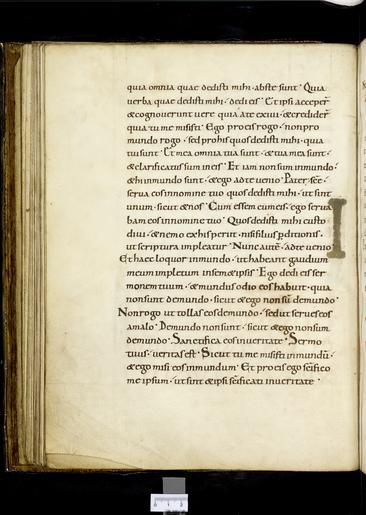 quia omnia quae dedisti mihi · abs te sunt · Quia
uerba quae dedisti mihi · dedi eis · Et ipsi acceper̄
& cognouerunt uere quia a te exiui · & credider̄
quia tu me misisti · Ego pro eis rogo · non pro
mundo rogo · sed pro his quos dedisti mihi · quia
tui sunt · Et mea omnia tua sunt · & tua mea sunt ·
& clarificatus sum in eis · Et iam non sum in mundo ·
& hi in mundo sunt · & ego ad te uenio · Pater sc̄e ·
serua eos in nomine tuo quos dedisti mihi · ut sint
unum · sicut & nos · Cum essem cum eis · ego serua
bam eos in nomine tuo · Quos dedisti mihi custo
diui · & nemo ex his periit · nisi filius perditionis ·
ut scriptura impleatur · Nunc autē · ad te uenio ·
Et haec loquor in mundo · ut habeant gaudium
meum impletum in sem&ipsis · Ego dedi eis ser
monem tuum · & mundus odio eos habuit · quia
non sunt de mundo · sicut & ego non sū de mundo ·
Non rogo ut tollas eos de mundo · sed ut serues eos
a malo · De mundo non sunt · sicut & ego non sum
de mundo · Sanctifica eos in ueritate · Sermo
tuus · ueritas est · Sicut tu me misisti in mundū ·
& ego misi eos in mundum · Et pro eis ego sc̄ifico
me ipsum · ut sint & ipsi sc̄ificati in ueritate ·